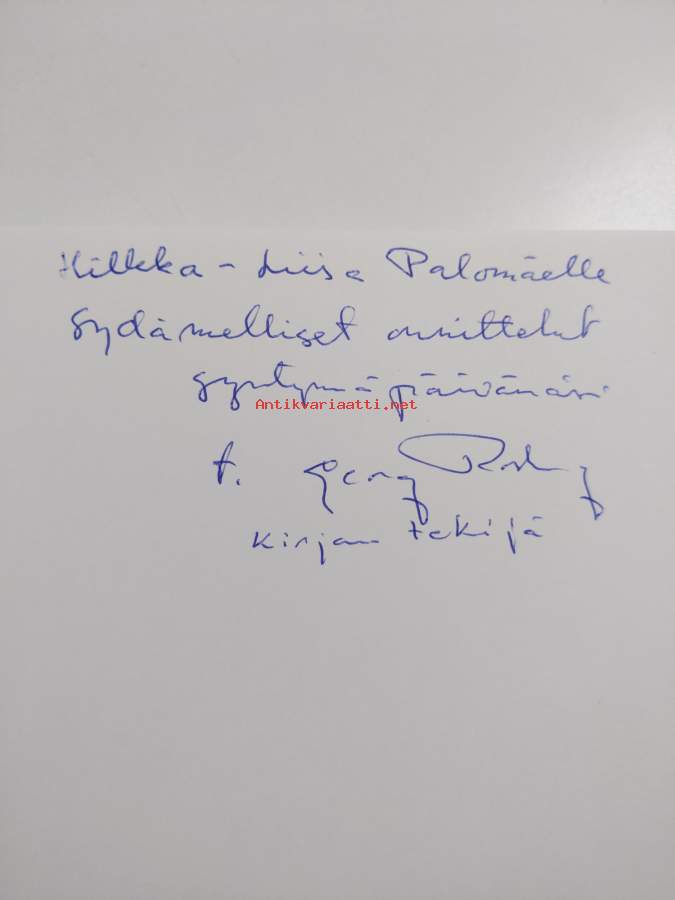 Hilkka-Liisa Palomäelle
Sydämelliset onnittelut
syntymäpäivänäsi
Antikvariaatti.net
t. Georg
kirjan tekijä